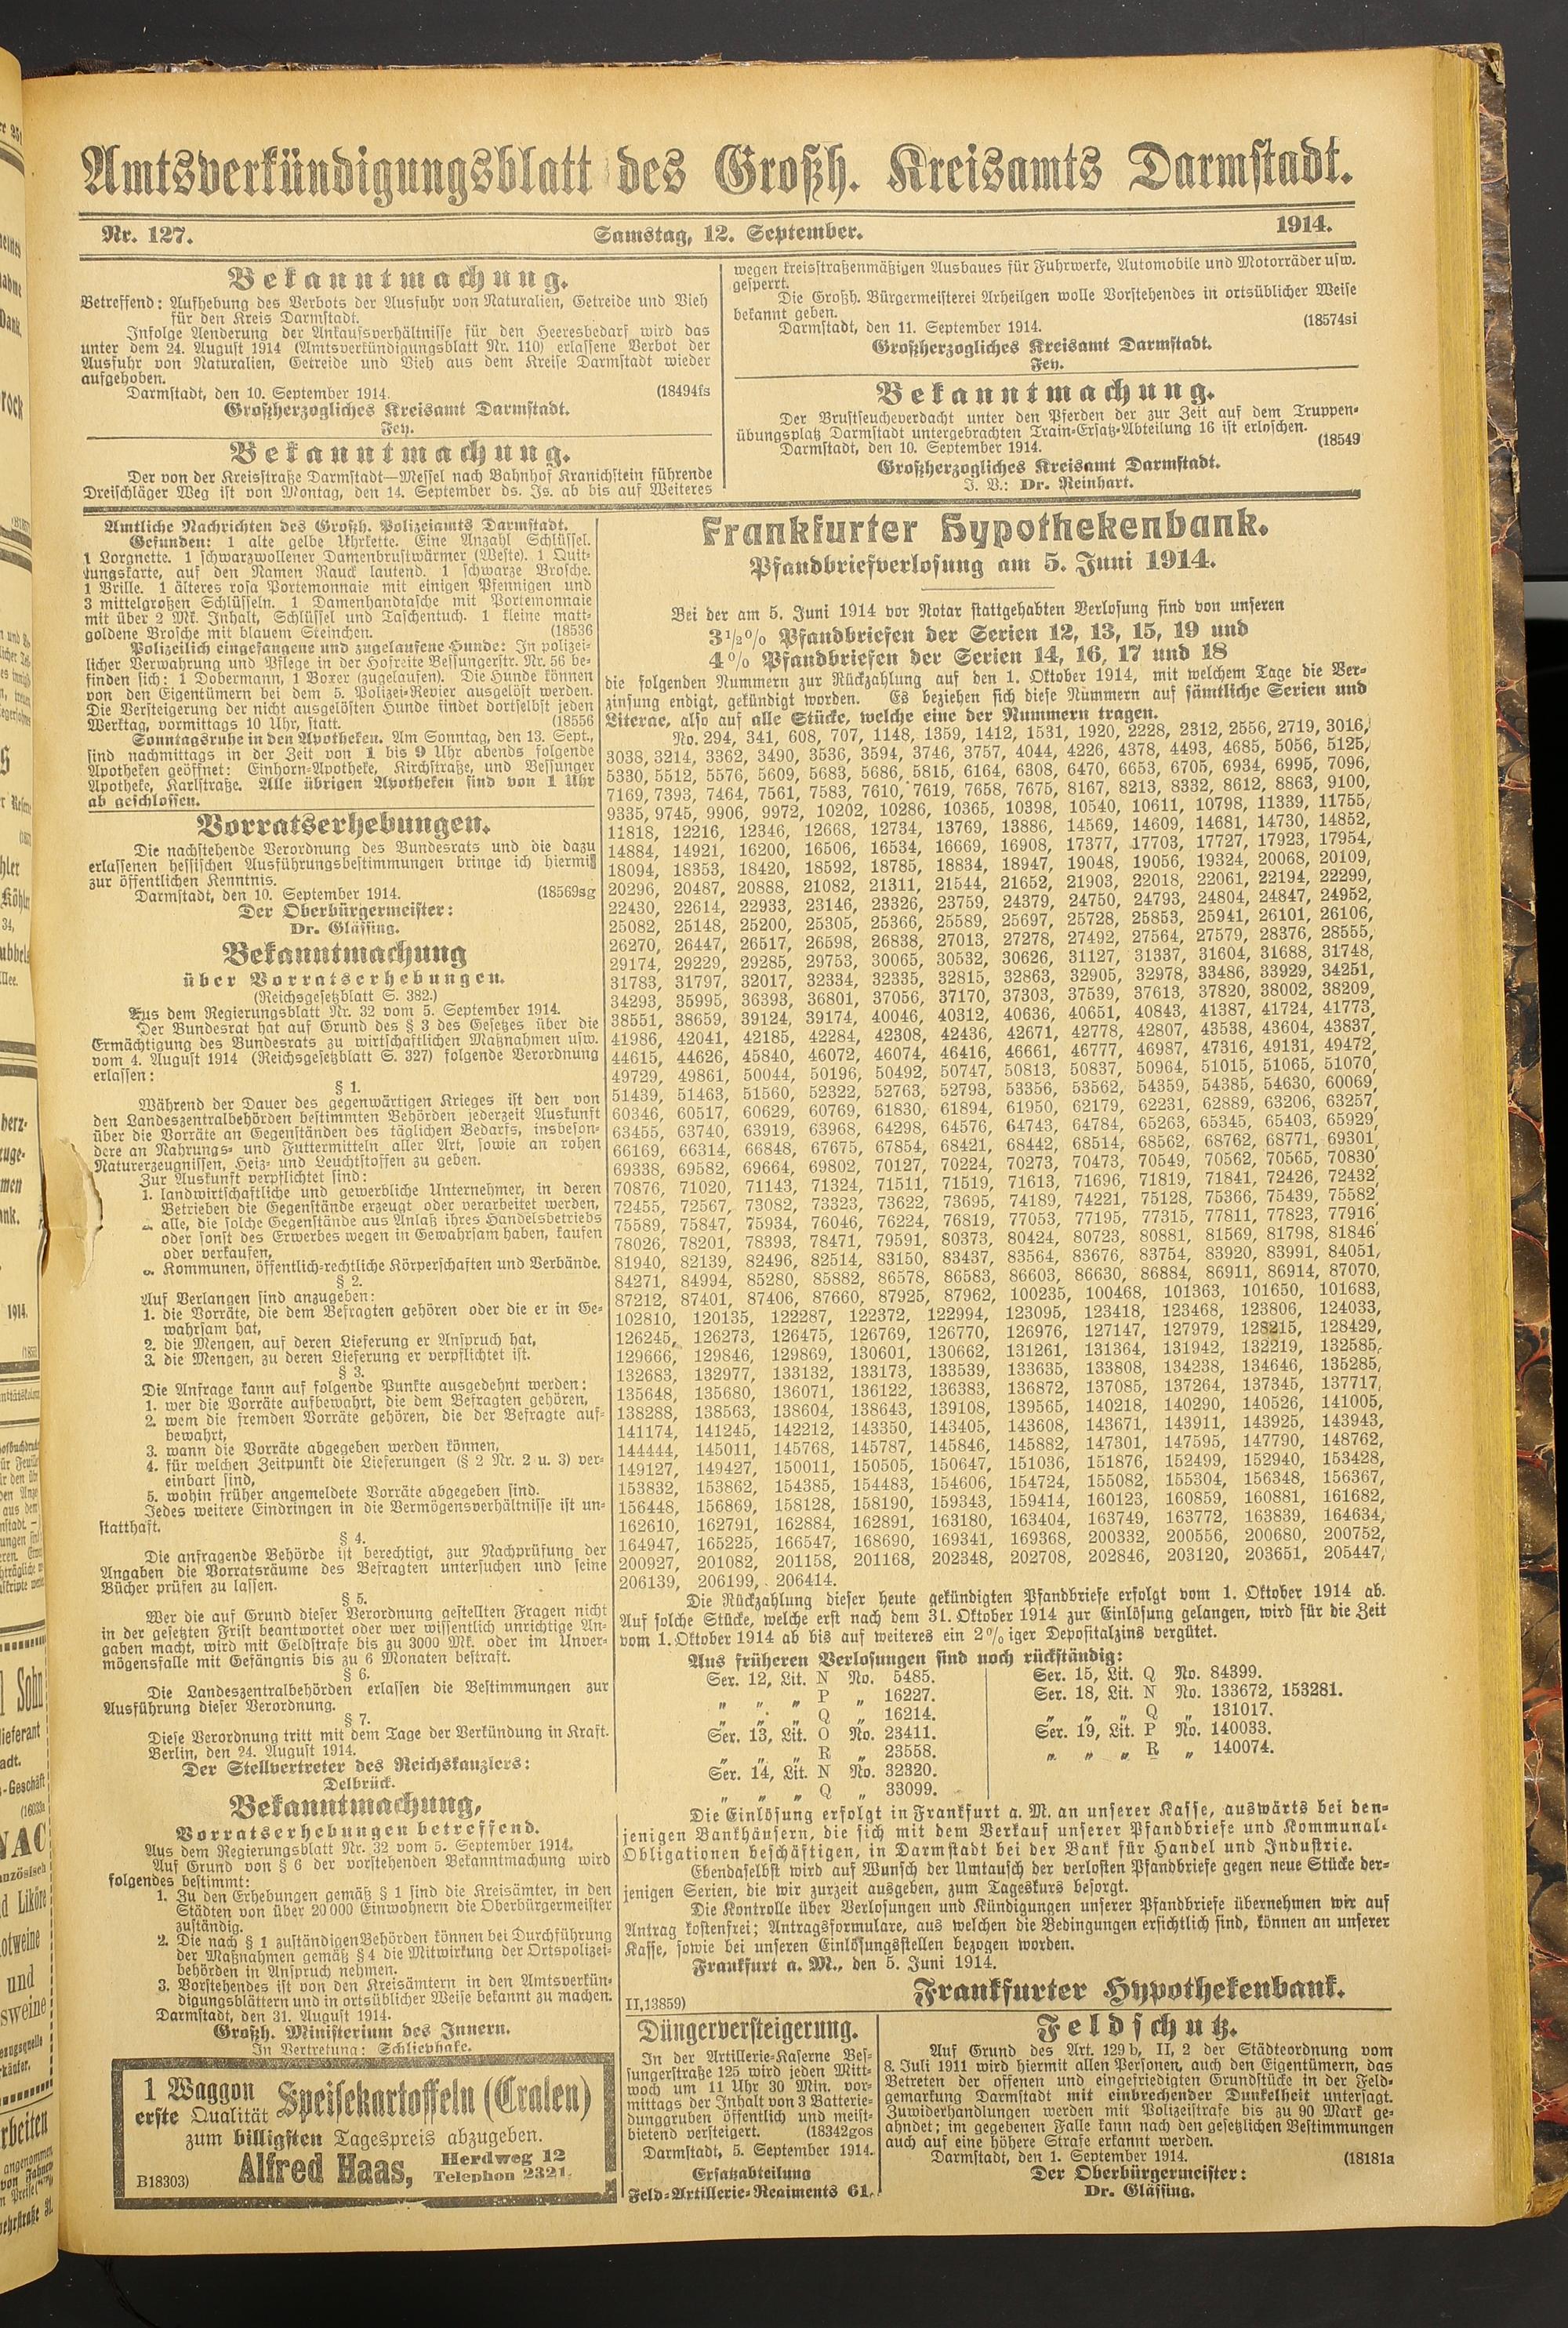 Amtsverkündigungsblatt des Großh. Kreisamts Darmstadt.
Nr. 127.
Samstag, 12. September.
1914.
Bekanntmachung.
Betreffend: Aufhebung des Verbots der Ausfuhr von Naturalien, Getreide und Vieh
für den Kreis Darmstadt.
Infolge Aenderung der Ankaufsverhältnisse für den Heeresbedarf wird das
unter dem 24. August 1914 (Amtsverkündigungsblatt Nr. 110) erlassene Verbot der
Ausfuhr von Naturalien, Getreide und Vieh aus dem Kreise Darmstadt wieder
aufgehoben.
Darmstadt, den 10. September 1914. (18494fs
Großherzogliches Kreisamt Darmstadt.
Fey.
Bekanntmachung.
Der von der Kreisstraße Darmstadt—Messel nach Bahnhof Kranichstein führende
Dreischläger Weg ist von Montag, den 14. September ds. Js. ab bis auf Weiteres
wegen kreisstraßenmäßigen Ausbaues für Fuhrwerke, Automobile und Motorräder usw.
gesperrt.
Die Großh. Bürgermeisterei Arheilgen wolle Vorstehendes in ortsüblicher Weise
bekannt geben.
Darmstadt, den 11. September 1914. (18574si
Großherzogliches Kreisamt Darmstadt.
Fey.
Bekanntmachung.
Der Brustseucheverdacht unter den Pferden der zur Zeit auf dem Truppen-
übungsplatz Darmstadt untergebrachten Train-Ersatz-Abteilung 16 ist erloschen.
Darmstadt, den 10. September 1914. (18549
Großherzogliches Kreisamt Darmstadt.
J. V.: Dr. Reinhart.
Amtliche Nachrichten des Großh. Polizeiamts Darmstadt.
Gefunden: 1 alte gelbe Uhrkette. Eine Anzahl Schlüssel.
1 Lorgnette. 1 schwarzwollener Damenbrustwärmer (Weste). 1 Quit-
tungskarte, auf den Namen Rauck lautend. 1 schwarze Brosche.
1 Brille. 1 älteres rosa Portemonnaie mit einigen Pfennigen und
3 mittelgroßen Schlüsseln. 1 Damenhandtasche mit Portemonnaie
mit über 2 Mk. Inhalt, Schlüssel und Taschentuch. 1 kleine matt-
goldene Brosche mit blauem Steinchen. (18536
Polizeilich eingefangene und zugelaufene Hunde: In polizei-
licher Verwahrung und Pflege in der Hofreite Bessungerstr. Nr. 56 be-
finden sich: 1 Dobermann, 1 Boxer (zugelaufen). Die Hunde können
von den Eigentümern bei dem 5. Polizei-Revier ausgelöst werden.
Die Versteigerung der nicht ausgelösten Hunde findet dortselbst jeden
Werktag, vormittags 10 Uhr, statt. (18556
Sonntagsruhe in den Apotheken. Am Sonntag, den 13. Sept.,
sind nachmittags in der Zeit von 1 bis 9 Uhr abends folgende
Apotheken geöffnet: Einhorn-Apotheke, Kirchstraße, und Bessunger
Apotheke, Karlstraße. Alle übrigen Apotheken sind von 1 Uhr
ab geschlossen.
Vorratserhebungen.
Die nachstehende Verordnung des Bundesrats und die dazu
erlassenen hessischen Ausführungsbestimmungen bringe ich hiermit
zur öffentlichen Kenntnis.
Darmstadt, den 10. September 1914. (18569sg
Der Oberbürgermeister:
Dr. Glässing.
Bekanntmachung
über Vorratserhebungen.
(Reichsgesetzblatt S. 382.)
Aus dem Regierungsblatt Nr. 32 vom 5. September 1914.
Der Bundesrat hat auf Grund des § 3 des Gesetzes über die
Ermächtigung des Bundesrats zu wirtschaftlichen Maßnahmen usw.
vom 4. August 1914 (Reichsgesetzblatt S. 327) folgende Verordnung
erlassen:
§ 1.
Während der Dauer des gegenwärtigen Krieges ist den von
den Landeszentralbehörden bestimmten Behörden jederzeit Auskunft
über die Vorräte an Gegenständen des täglichen Bedarfs, insbeson-
dere an Nahrungs- und Futtermitteln aller Art, sowie an rohen
Naturerzeugnissen, Heiz- und Leuchtstoffen zu geben.
Zur Auskunft verpflichtet sind:
1. landwirtschaftliche und gewerbliche Unternehmer, in deren
Betrieben die Gegenstände erzeugt oder verarbeitet werden,
alle, die solche Gegenstände aus Anlaß ihres Handelsbetriebs
oder sonst des Erwerbes wegen in Gewahrsam haben, kaufen
oder verkaufen,
Kommunen, öffentlich-rechtliche Körperschaften und Verbände.
§ 2.
Auf Verlangen sind anzugeben:
1. die Vorräte, die dem Befragten gehören oder die er in Ge-
wahrsam hat,
2. die Mengen, auf deren Lieferung er Anspruch hat,
3. die Mengen, zu deren Lieferung er verpflichtet ist.
§ 3.
Die Anfrage kann auf folgende Punkte ausgedehnt werden:
1. wer die Vorräte aufbewahrt, die dem Befragten gehören,
2. wem die fremden Vorräte gehören, die der Befragte auf-
bewahrt,
3. wann die Vorräte abgegeben werden können,
4. für welchen Zeitpunkt die Lieferungen (§ 2 Nr. 2 u. 3) ver-
einbart sind,
5. wohin früher angemeldete Vorräte abgegeben sind.
Jedes weitere Eindringen in die Vermögensverhältnisse ist un-
statthaft.
§ 4.
Die anfragende Behörde ist berechtigt, zur Nachprüfung der
Angaben die Vorratsräume des Befragten untersuchen und seine
Bücher prüfen zu lassen.
§ 5.
Wer die auf Grund dieser Verordnung gestellten Fragen nicht
in der gesetzten Frist beantwortet oder wer wissentlich unrichtige An-
gaben macht, wird mit Geldstrafe bis zu 3000 Mk. oder im Unver-
mögensfalle mit Gefängnis bis zu 6 Monaten bestraft.
§ 6.
Die Landeszentralbehörden erlassen die Bestimmungen zur
Ausführung dieser Verordnung.
§ 7.
Diese Verordnung tritt mit dem Tage der Verkündung in Kraft.
Berlin, den 24. August 1914.
Der Stellvertreter des Reichskanzlers:
Delbrück.
Bekanntmachung,
Vorratserhebungen betreffend.
Aus dem Regierungsblatt Nr. 32 vom 5. September 1914.
Auf Grund von § 6 der vorstehenden Bekanntmachung wird
folgendes bestimmt:
1. Zu den Erhebungen gemäß § 1 sind die Kreisämter, in den
Städten von über 20000 Einwohnern die Oberbürgermeister
zuständig.
2. Die nach § 1 zuständigen Behörden können bei Durchführung
der Maßnahmen gemäß § 4 die Mitwirkung der Ortspolizei-
behörden in Anspruch nehmen.
3. Vorstehendes ist von den Kreisämtern in den Amtsverkün-
digungsblättern und in ortsüblicher Weise bekannt zu machen.
Darmstadt, den 31. August 1914.
Großh. Ministerium des Innern.
In Vertretung: Schliephake.
1 Waggon
erste Qualität
Speisekartoffeln (Cralen)
zum billigsten Tagespreis abzugeben.
B18303)
Alfred Haas,
Herdweg 12
Telephon 2321.
Frankfurter Hypothekenbank.
Pfandbriefverlosung am 5. Juni 1914.
Bei der am 5. Juni 1914 vor Notar stattgehabten Verlosung sind von unseren
3½% Pfandbriefen der Serien 12, 13, 15, 19 und
4% Pfandbriefen der Serien 14, 16, 17 und 18
die folgenden Nummern zur Rückzahlung auf den 1. Oktober 1914, mit welchem Tage die Ver-
zinsung endigt, gekündigt worden. Es beziehen sich diese Nummern auf sämtliche Serien und
Literae, also auf alle Stücke, welche eine der Nummern tragen.
No. 294, 341, 608, 707, 1148, 1359, 1412, 1531, 1920, 2228, 2312, 2556, 2719, 3016,
3038, 3214, 3362, 3490, 3536, 3594, 3746, 3757, 4044, 4226, 4378, 4493, 4685, 5056, 5125,
5330, 5512, 5576, 5609, 5683, 5686, 5815, 6164, 6308, 6470, 6653, 6705, 6934, 6995, 7096,
7169, 7393, 7464, 7561, 7583, 7610, 7619, 7658, 7675, 8167, 8213, 8332, 8612, 8863, 9100,
9335, 9745, 9906, 9972, 10202, 10286, 10365, 10398, 10540, 10611, 10798, 11339, 11755,
11818, 12216, 12346, 12668, 12734, 13769, 13886, 14569, 14609, 14681, 14730, 14852,
14884, 14921, 16200, 16506, 16534, 16669, 16908, 17377, 17703, 17727, 17923, 17954,
18094, 18353, 18420, 18592, 18785, 18834, 18947, 19048, 19056, 19324, 20068, 20109,
20296, 20487, 20888, 21082, 21311, 21544, 21652, 21903, 22018, 22061, 22194, 22299,
22430, 22614, 22933, 23146, 23326, 23759, 24379, 24750, 24793, 24804, 24847, 24952,
25082, 25148, 25200, 25305, 25366, 25589, 25697, 25728, 25853, 25941, 26101, 26106,
26270, 26447, 26517, 26598, 26838, 27013, 27278, 27492, 27564, 27579, 28376, 28555,
29174, 29229, 29285, 29753, 30065, 30532, 30626, 31127, 31337, 31604, 31688, 31748,
31783, 31797, 32017, 32334, 32335, 32815, 32863, 32905, 32978, 33486, 33929, 34251,
34293, 35995, 36393, 36801, 37056, 37170, 37303, 37539, 37613, 37820, 38002, 38209,
38551, 38659, 39124, 39174, 40046, 40312, 40636, 40651, 40843, 41387, 41724, 41773,
41986, 42041, 42185, 42284, 42308, 42436, 42671, 42778, 42807, 43538, 43604, 43837,
44615, 44626, 45840, 46072, 46074, 46416, 46661, 46777, 46987, 47316, 49131, 49472,
49729, 49861, 50044, 50196, 50492, 50747, 50813, 50837, 50964, 51015, 51065, 51070,
51439, 51463, 51560, 52322, 52763, 52793, 53356, 53562, 54359, 54385, 54630, 60069,
60346, 60517, 60629, 60769, 61830, 61894, 61950, 62179, 62231, 62889, 63206, 63257,
63455, 63740, 63919, 63968, 64298, 64576, 64743, 64784, 65263, 65345, 65403, 65929,
66169, 66314, 66848, 67675, 67854, 68421, 68442, 68514, 68562, 68762, 68771, 69301,
69338, 69582, 69664, 69802, 70127, 70224, 70273, 70473, 70549, 70562, 70565, 70830,
70876, 71020, 71143, 71324, 71511, 71519, 71613, 71696, 71819, 71841, 72426, 72432,
72455, 72567, 73082, 73323, 73622, 73695, 74189, 74221, 75128, 75366, 75439, 75582,
75589, 75847, 75934, 76046, 76224, 76819, 77053, 77195, 77315, 77811, 77823, 77916,
78026, 78201, 78393, 78471, 79591, 80373, 80424, 80723, 80881, 81569, 81798, 81846,
81940, 82139, 82496, 82514, 83150, 83437, 83564, 83676, 83754, 83920, 83991, 84051,
84271, 84994, 85280, 85882, 86578, 86583, 86603, 86630, 86884, 86911, 86914, 87070,
87212, 87401, 87406, 87660, 87925, 87962, 100235, 100468, 101363, 101650, 101683,
102810, 120135, 122287, 122372, 122994, 123095, 123418, 123468, 123806, 124033,
126245, 126273, 126475, 126769, 126770, 126976, 127147, 127979, 128215, 128429,
129666, 129846, 129869, 130601, 130662, 131261, 131364, 131942, 132219, 132585,
132683, 132977, 133132, 133173, 133539, 133635, 133808, 134238, 134646, 135285,
135648, 135680, 136071, 136122, 136383, 136872, 137085, 137264, 137345, 137717,
138288, 138563, 138604, 138643, 139108, 139565, 140218, 140290, 140526, 141005,
141174, 141245, 142212, 143350, 143405, 143608, 143671, 143911, 143925, 143943,
144444, 145011, 145768, 145787, 145846, 145882, 147301, 147595, 147790, 148762,
149127, 149427, 150011, 150505, 150647, 151036, 151876, 152499, 152940, 153428,
153832, 153862, 154385, 154483, 154606, 154724, 155082, 155304, 156348, 156367,
156448, 156869, 158128, 158190, 159343, 159414, 160123, 160859, 160881, 161682,
162610, 162791, 162884, 162891, 163180, 163404, 163749, 163772, 163839, 164634,
164947, 165225, 166547, 168690, 169341, 169368, 200332, 200556, 200680, 200752,
200927, 201082, 201158, 201168, 202348, 202708, 202846, 203120, 203651, 205447,
206139, 206199, 206414.
Die Rückzahlung dieser heute gekündigten Pfandbriefe erfolgt vom 1. Oktober 1914 ab.
Auf solche Stücke, welche erst nach dem 31. Oktober 1914 zur Einlösung gelangen, wird für die Zeit
vom 1. Oktober 1914 ab bis auf weiteres ein 2%iger Depositalzins vergütet.
Aus früheren Verlosungen sind noch rückständig:
Ser. 12, Lit. N No. 5485.
„ „ „ P „ 16227.
„ „ „ Q „ 16214.
Ser. 13, Lit. O No. 23411.
„ „ „ R „ 23558.
Ser. 14, Lit. N No. 32320.
„ „ „ Q „ 33099.
Ser. 15, Lit. Q No. 84399.
Ser. 18, Lit. N No. 133672, 153281.
„ „ „ Q „ 131017.
Ser. 19, Lit. P No. 140033.
„ „ „ R „ 140074.
Die Einlösung erfolgt in Frankfurt a. M. an unserer Kasse, auswärts bei den-
jenigen Bankhäusern, die sich mit dem Verkauf unserer Pfandbriefe und Kommunal-
Obligationen beschäftigen, in Darmstadt bei der Bank für Handel und Industrie.
Ebendaselbst wird auf Wunsch der Umtausch der verlosten Pfandbriefe gegen neue Stücke der-
jenigen Serien, die wir zurzeit ausgeben, zum Tageskurs besorgt.
Die Kontrolle über Verlosungen und Kündigungen unserer Pfandbriefe übernehmen wir auf
Antrag kostenfrei; Antragsformulare, aus welchen die Bedingungen ersichtlich sind, können an unserer
Kasse, sowie bei unseren Einlösungsstellen bezogen worden.
Frankfurt a. M., den 5. Juni 1914.
II,13859)
Frankfurter Hypothekenbank.
Düngerversteigerung.
In der Artillerie-Kaserne Bes-
sungerstraße 125 wird jeden Mitt-
woch um 11 Uhr 30 Min. vor-
mittags der Inhalt von 3 Batterie-
dunggruben öffentlich und meist-
bietend versteigert. (18342gos
Darmstadt, 5. September 1914.
Ersatzabteilung
Feld-Artillerie-Regiments 61.
Feldschutz.
Auf Grund des Art. 129b, II, 2 der Städteordnung vom
8. Juli 1911 wird hiermit allen Personen, auch den Eigentümern, das
Betreten der offenen und eingefriedigten Grundstücke in der Feld-
gemarkung Darmstadt mit einbrechender Dunkelheit untersagt.
Zuwiderhandlungen werden mit Polizeistrafe bis zu 90 Mark ge-
ahndet; im gegebenen Falle kann nach den gesetzlichen Bestimmungen
auch auf eine höhere Strafe erkannt werden.
Darmstadt, den 1. September 1914. (18181a
Der Oberbürgermeister:
Dr. Glässing.